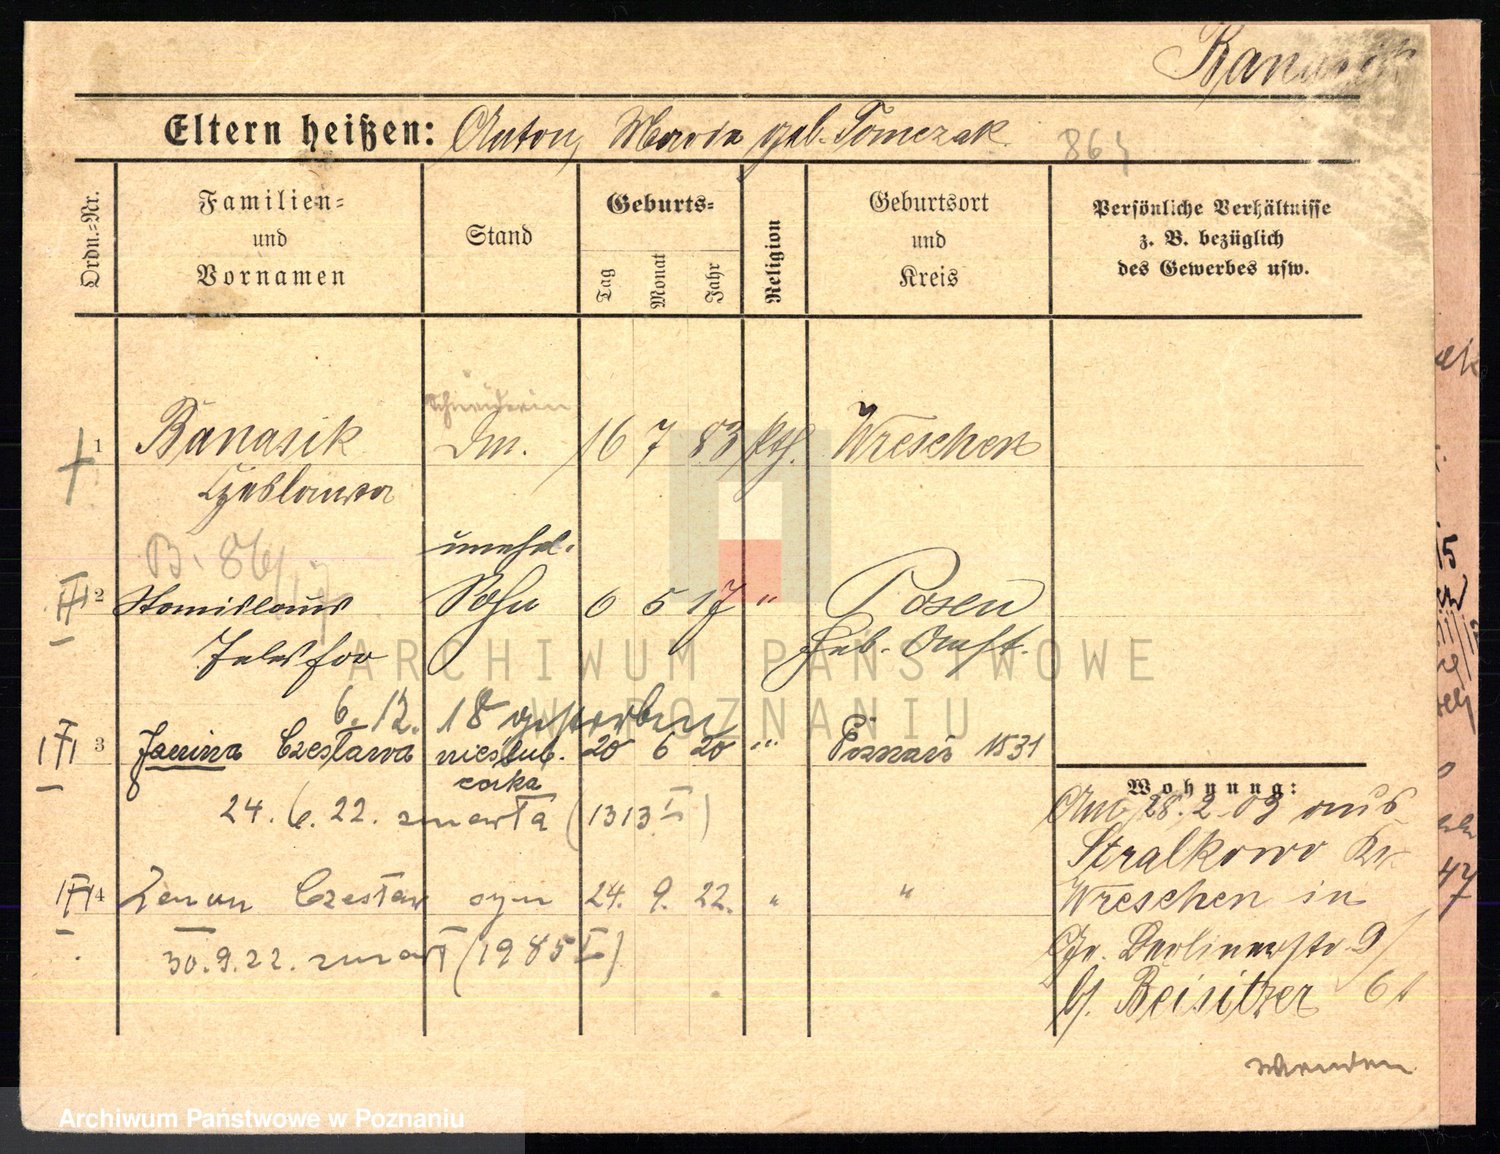 Banasik
Eltern heißen: Anton, Maria geb. Tomczak
864
Ordn.=Nr.
Familien=
und
Vornamen
Stand
Geburts=
Tag
Monat
Jahr
Religion
Geburtsort
und
Kreis
Persönliche Verhältnisse
z. B. bezüglich
des Gewerbes usw.
Schneiderin
1 Banasik Dm. 16 7 83 kth. Wreschen
Czeslawa
B. 86/17
unehel.
2 Stanislaus Sohn 6 5 17 " Posen
Telesfor Geb. Amt.
6. 12. 18 gestorben
3 Janina Czesława nieślub. 20 6 20 " Poznań 1531
córka
24. 6. 22. zmarła (1313 I)
4 Zenon Czesław syn 24. 9. 22. " "
30. 9. 22. zmarł (1985 I)
Wohnung:
Am 28.2.03 aus
Stralkowo Kr.
Wreschen in
Gr. Berlinerstr 9
b/. Beisitzer 61
wenden
ARCHIWUM PAŃSTWOWE
W POZNANIU
Archiwum Państwowe w Poznaniu